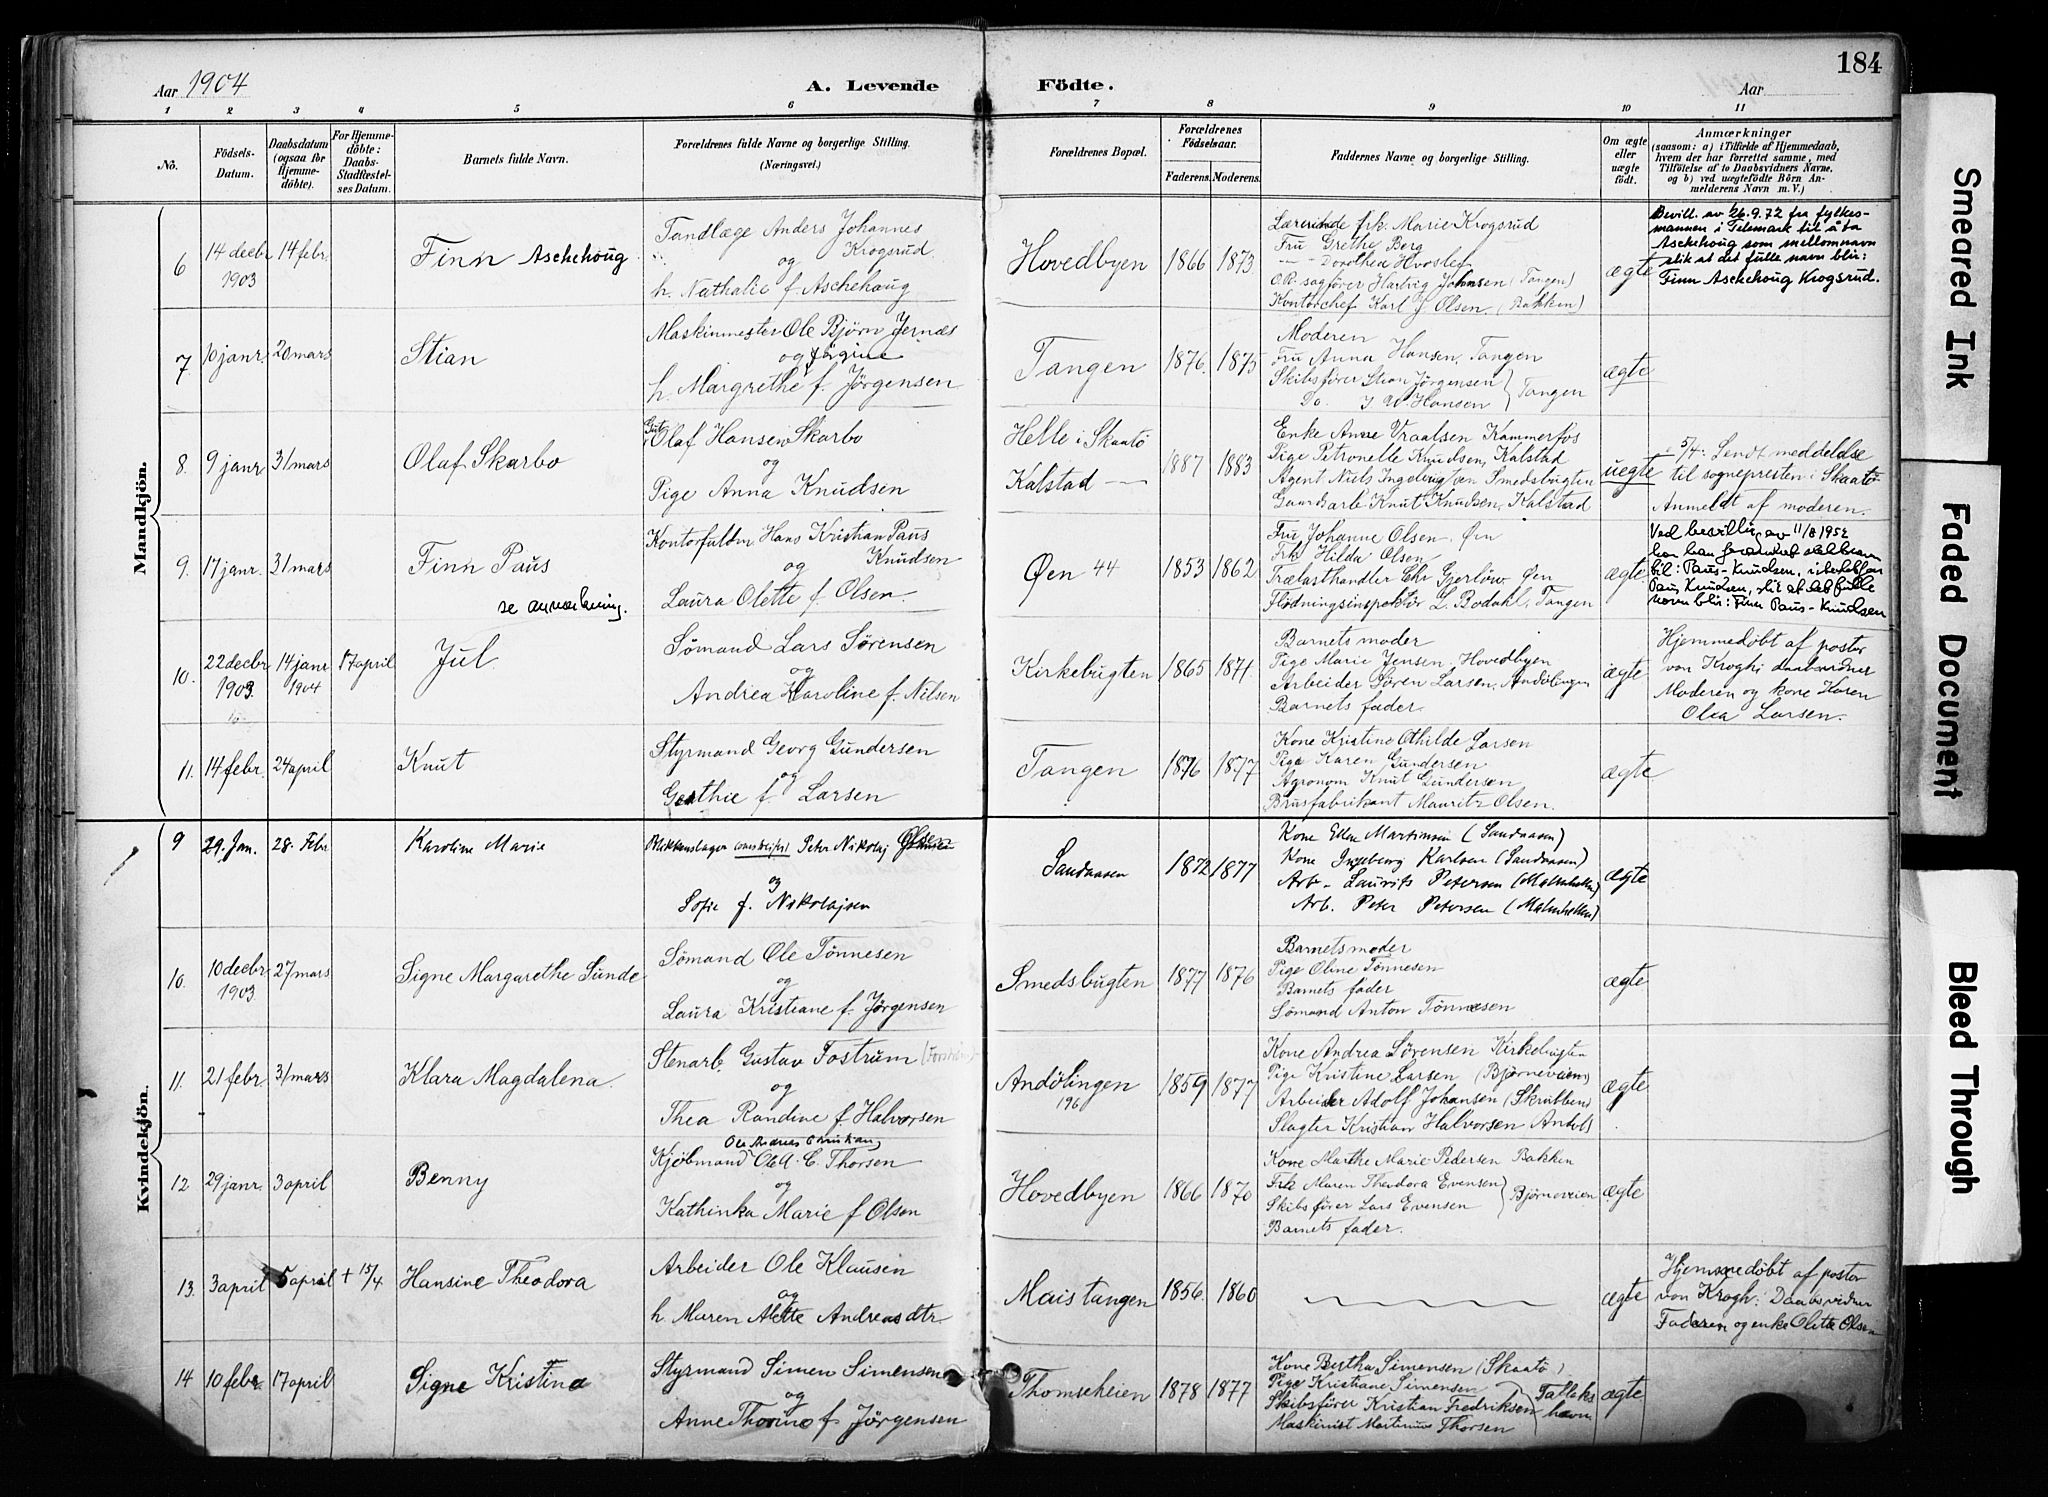 184
Aar 1904
A. Levende Födte.
Aar
1 2 3 4 5 6 7 8 9 10 11
No.
Födsels-Datum.
Daabsdatum (ogsaa for Hjemmedöbte).
For Hjemmedöbte: Daabs-Stadfæstelses Datum.
Barnets fulde Navn.
Forældrenes fulde Navne og borgerlige Stilling. (Næringsvei.)
Forældrenes Bopæl.
Forældrenes Födselsaar.
Faderens. Moderens.
Faddernes Navne og borgerlige Stilling.
Om ægte eller uægte födt.
Anmærkninger
(saasom: a) i Tilfælde af Hjemmedaab, hvem der har forrettet samme, med Tilföielse af to Daabsvidners Navne, og b) ved uægtefödte Börn Anmelderens Navn m. V.)
Mandkjön.
6 14 decbr 1903 14 febr. Finn Aschehoug
Tandlæge Anders Johannes Krogsrud
og
h. Nathalie f. Aschehoug
Hovedbyen 1866 1873
Lærerinde frk. Marie Krogsrud
Fru Grethe Berg
Dorothea Hvoslef
O.R. sagfører Hartvig Johnsen (Tangen)
Kontorchef Karl J Olsen. (Bakken)
ægte
Bevill. av 26.9.72 fra fylkesmannen i Telemark til å ta Aschehoug som mellomnavn slik at det fulle navn blir: Finn Aschehoug Krogsrud.
7. 10 janr. 20 mars Stian
Maskinmester Ole Bjørn Jernæs
og Jørgine
h. Margrethe f. Jörgensen
Tangen 1876. 1875
Moderen
Fru Anna Hansen, Tangen
Skibsfører Stian Jørgensen
Do. J W. Hansen } Tangen
ægte
8. 9 janr 31 mars Olaf Skarbo
Gut Olaf Hansen Skarbo
og
Pige Anna Knudsen
Helle i Skaatö
Kalstad
1887 1883
Enke Anne Vraalsen Kammerfos
Pige Petronelle Knudsen, Kalstad
Agent Niels Smedsbugten
Gaardsarb. Knut Knudsen, Kalstad
uegte
5/4: Sendt meddelelse til sognepresten i Skaatö
Anmeldt af moderen.
9. 17 janr. 31 mars Finn Paus
se anmerkning.
Kontorfuldm Hans Kristian Paus Knudsen
og
Laura Olette f. Olsen.
Øen 44 1853 1862
Fru Johanne Olsen. Øen
Frk Hilda Olsen
Trælasthandler Chr Gjerløw. Øen
Flödningsinspektör L. Bodahl, Tangen
ægte
Ved bevillig. av 11/8 1952 har han forandret slektsnavn til: Paus-Knudsen, istedetfor Paus Knudsen, slik at det fulle navn blir: Finn Paus-Knudsen
10. 22 decbr 1903. 14 janr 1904 17 april Jul
Sömand Lars Sørensen
og
Andrea Karoline f. Nilsen
Kirkebugten 1865 1871.
Barnets moder
Pige Marie Jensen, Hovedbyen
Arbeider Sören Larsen, Andölingen
Barnets fader.
ægte
Hjemmedøbt af pastor von Krogh; daabsvidner Moderen og kone Karen Olea Larsen.
11. 14 febr. 24 april Knut
Styrmand Georg Gundersen
og
Gusthie f. Larsen
Tangen 1876 1877
Kone Kristine Othilde Larsen
Pige Karen Gundersen
Agronom Knut Gundersen
Brusfabrikant Mauritz Olsen.
ægte
Kvindekjön.
9 29. Jan. 28. Febr Karoline Marie
Blikkenslager Peter Nikolaj Olsen
og
Sofie f. Nikolajsen
Sandaasen 1872 1877
Kone Ellen Martinsen (Sandaasen)
Kone Ingeborg Karlsen (Sandaasen)
Arb. Laurits Petersen (Malmhellen)
Arb. Peter Petersen (Malmhellen)
ægte
10. 10 decbr 1903. 27 mars Signe Margarethe Sunde
Sømand Ole Tönnesen
og
Laura Kristiane f. Jørgensen
Smedsbugten 1877 1876
Barnets moder
Pige Oline Tønnesen
Barnets fader
Sömand Anton Tönnesen
ægte
11. 21 febr 31 mars Klara Magdalena.
Stenarb. Gustav Fostrum
og
Thea Randine f. Halvorsen
Andölingen 196 1859 1877
Kone Andrea Sørensen Kirkebugten
Pige Kristine Larsen (Bjørneveien)
Arbeider Adolf Johansen (Skrubben)
Slagter Kristian Halvorsen Andöl.
ægte
12 29 janr. 3 april Benny
Ole Andreas Christian
Kjøbmand Ole A. C. Thorsen
og
Kathinka Marie f Olsen
Hovedbyen 1866 1870
Kone Marthe Marie Pedersen Bakken
Frk Maren Theodora Evensen
Skibsfører Lars Evensen } Bjørneveien
Barnets fader.
ægte
13. 3 april 5 april + 15/4 Hansine Theodora
Arbeider Ole Klausen
og
h. Maren Alette Andreasdtr
Maistangen 1856. 1860
ægte
Hjemmedøbt af pastor von Krogh; Daabsvidner Faderen og enke Olette Olsen
14 10 febr. 17 april Signe Kristine
Styrmand Simen Simensen
og
Anne Thorine f. Jørgensen
Thomseheien 1878 1877
Kone Bertha Simensen (Skaatö)
Pige Kristiane Simensen
Skibsfører Kristian Fredriksen
Maskinist Martinius Thorsen
} Tallakshavn
ægte
Smeared Ink
Faded Document
Bleed Through